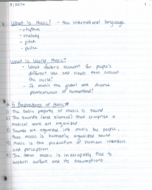 What is Music? - the international language
- rhythm
- melody
- pitch
- pulse
What is World Music?
What factors account for people's
different likes and needs their culture
the world?
Is music the global and diverse
phenomenon of humankind?
5 Properties of Music
The basic property of music is sound
The sounds (and silences) that comprise a
musical work are organized
Sounds are organized into music by people,
thus music is humanly organized sound
Music is the production of human intention
and perception
The term music is inescapably tied to
western culture and its assumptions